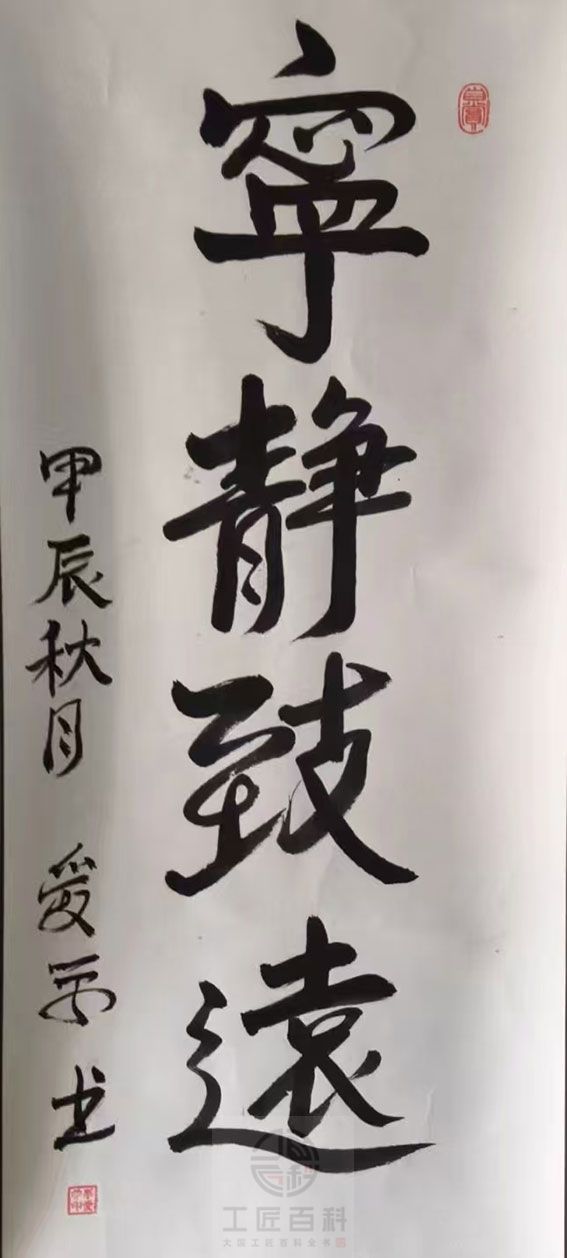 寧靜致遠
甲辰秋月 爱平 书
工匠百科
大国工匠百科全书